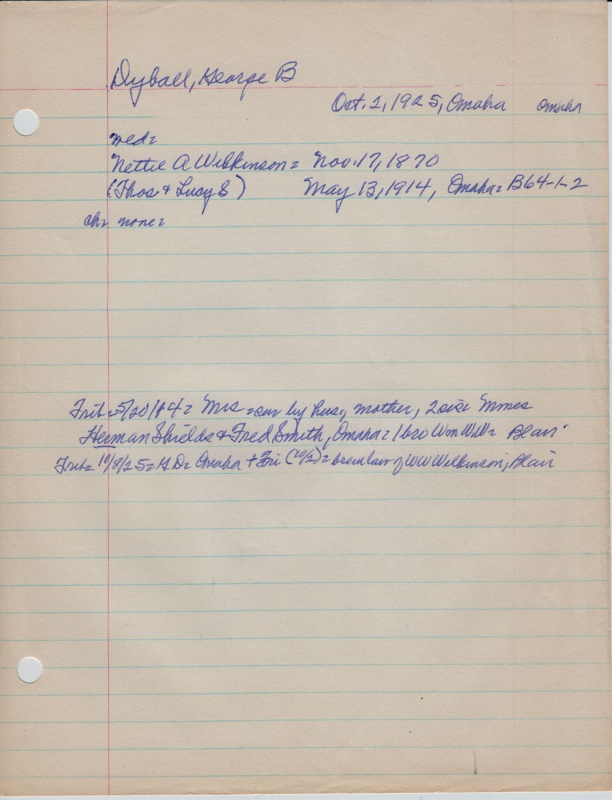 Dyball, George B
Oct. 2, 1925, Omaha Omaha
wed=
Nettie A Wilkinson = Nov. 17, 1870
(Thos & Lucy E) May 13, 1914, Omaha = B64-1-2
ch= none=
Trib = 5/20/14 = Mrs = sur by hus, mother, 2 sis = Mmes
Herman Shields & Fred Smith, Omaha = 1 bro Wm W W = Blair
Trib = 10/8/25 = G D = Omaha + Fri (10/2) = broinlaw of W W Wilkinson, Blair